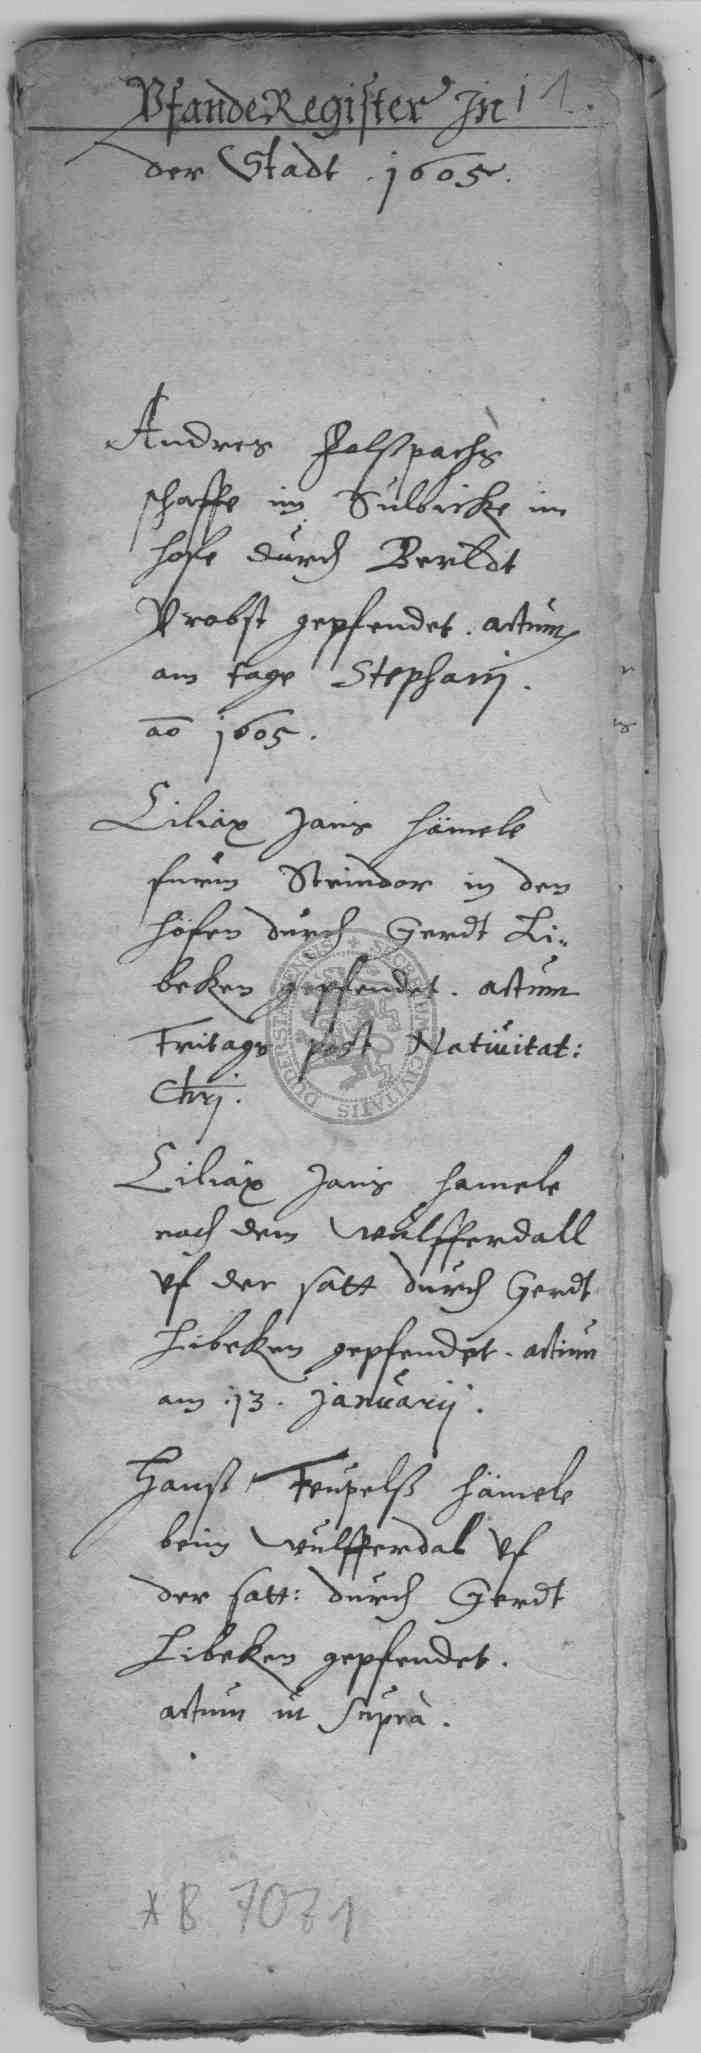 PfandeRegister In 1
der Stadt . 1605.
Andres Polßpachs
schaffe im Sulbicke im
hofe durch Berldt
Probst gepfendet. actum
am tage Stephanj.
ao 1605.
Ciliax Janis hämele
furm Steindor in den
höfen durch Gerdt Li-
beken gepfendet. actum
Fritags post Nativitat:
Chrj.
Ciliax Janis hamele
nach dem Wulfferdall
vf der satt durch Gerdt
Libeken gepfendet. actum
am 13. Januarij.
Hanß Teupelß hämele
beim Wulfferdal vf
der satt: durch Gerdt
Libeken gepfendet.
actum ut supra.
SECRETUM CIVITATIS DUDERSTADENSIS
* B 7071